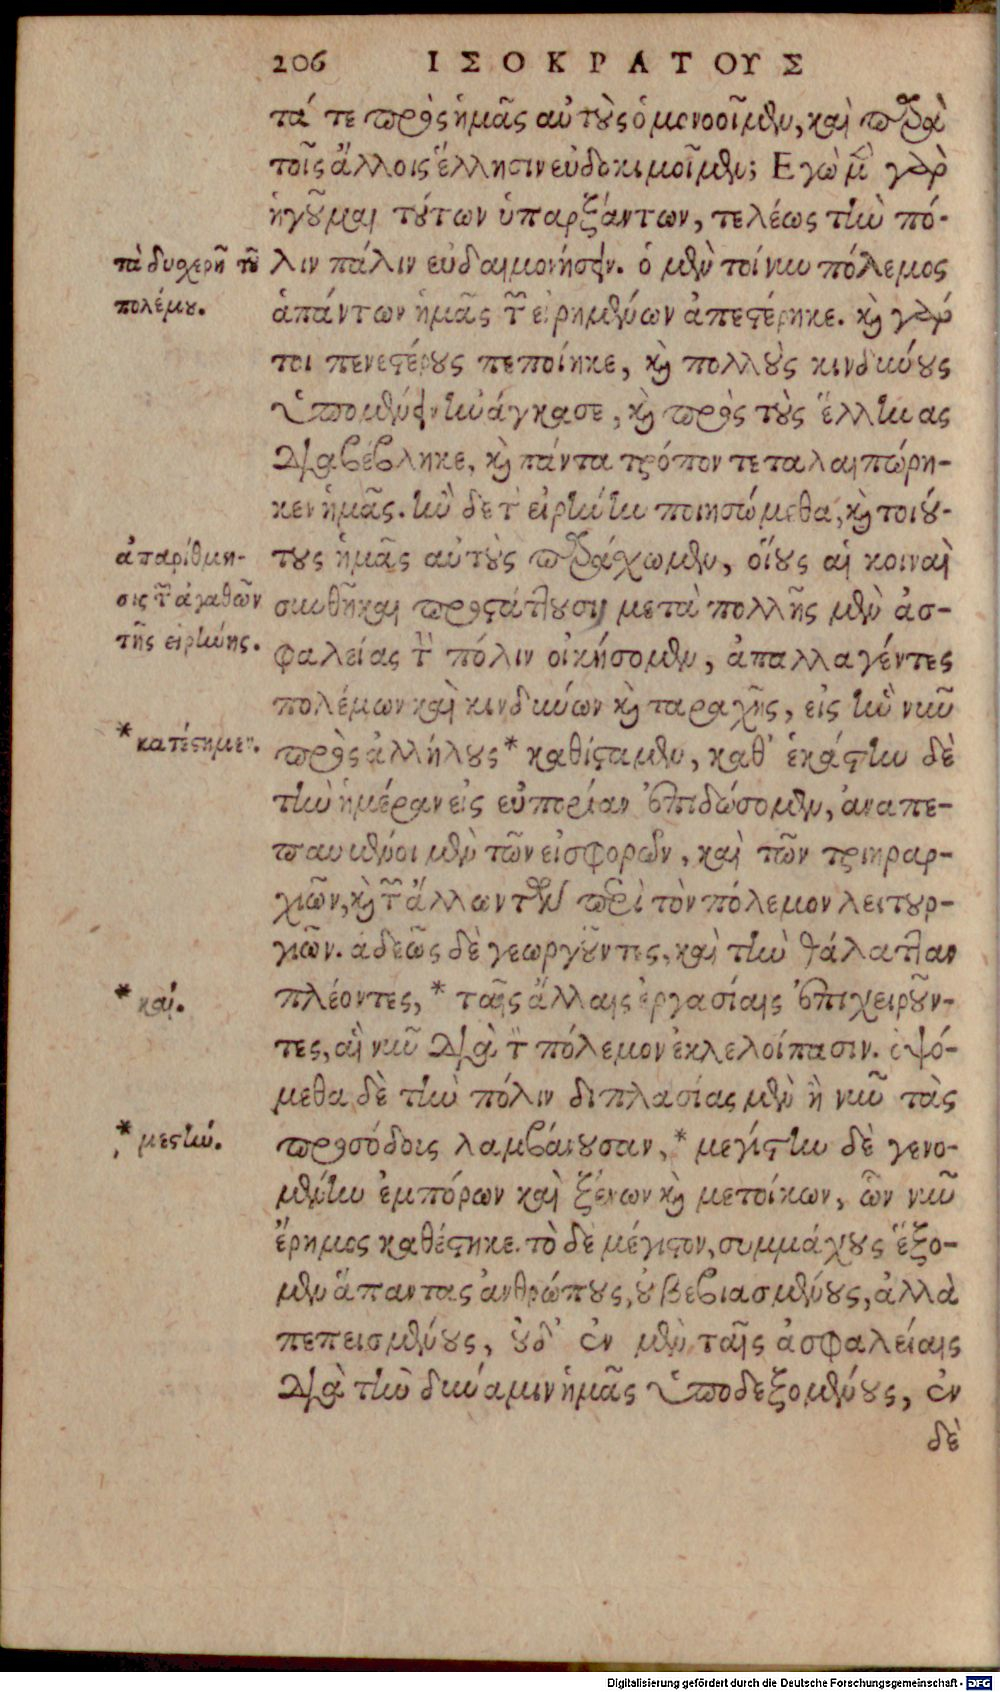 206 ΙΣΟΚΡΑΤΟΥΣ
τά τε πρὸς ἡμᾶς αὐτοὺς ὁμονοοῖμεν, καὶ παρὰ
τοῖς ἄλλοις ἕλλησιν εὐδοκιμοῖμεν; Εγὼ μὲν γὰρ
ἡγοῦμαι τούτων ὑπαρξάντων, τελέως τὴν πό-
τὰ δυσχερῆ τοῦ
πολέμου.
λιν πάλιν εὐδαιμονήσειν. ὁ μὲν τοίνυν πόλεμος
ἁπάντων ἡμᾶς τῶν εἰρημένων ἀπεστέρηκε. καὶ γάρ
τοι πενεστέρους πεποίηκε, καὶ πολλοὺς κινδύνους
ὑπομένειν ἠνάγκασε, καὶ πρὸς τοὺς ἕλληνας
διαβέβληκε, καὶ πάντα τρόπον τεταλαιπώρη-
κεν ἡμᾶς. ἢν δὲ τὴν εἰρήνην ποιησώμεθα, καὶ τοιού-
ἀπαρίθμη-
σις τῶν ἀγαθῶν
τῆς εἰρήνης.
τους ἡμᾶς αὐτοὺς παράσχωμεν, οἵους αἱ κοιναὶ
συνθῆκαι προστάττουσι, μετὰ πολλῆς μὲν ἀσ-
φαλείας τὴν πόλιν οἰκήσομεν, ἀπαλλαγέντες
πολέμων καὶ κινδύνων καὶ ταραχῆς, εἰς ἣν νῦν
* κατέστημεν.
πρὸς ἀλλήλους * καθίσταμεν, καθ' ἑκάστην δὲ
τὴν ἡμέραν εἰς εὐπορίαν ἐπιδώσομεν, ἀναπε-
παυμένοι μὲν τῶν εἰσφορῶν, καὶ τῶν τριηραρ-
χιῶν, καὶ τῶν ἄλλων τῶν περὶ τὸν πόλεμον λειτουρ-
γιῶν. ἀδεῶς δὲ γεωργοῦντες, καὶ τὴν θάλατταν
* καί.
πλέοντες, * ταῖς ἄλλαις ἐργασίαις ἐπιχειροῦν-
τες, αἳ νῦν διὰ τὸν πόλεμον ἐκλελοίπασιν. ὀψό-
μεθα δὲ τὴν πόλιν διπλασίας μὲν ἢ νῦν τὰς
* μεστήν.
προσόδοις λαμβάνουσαν, * μεγίστην δὲ γενο-
μένην ἐμπόρων καὶ ξένων καὶ μετοίκων, ὧν νῦν
ἔρημος καθέστηκε. τὸ δὲ μέγιστον, συμμάχους ἕξο-
μεν ἅπαντας ἀνθρώπους, οὐ βεβιασμένους, ἀλλὰ
πεπεισμένους, οὐδ' ἐν μὲν ταῖς ἀσφαλείαις
διὰ τὴν δύναμιν ἡμᾶς ὑποδεξομένους, ἐν
δὲ
Digitalisierung gefördert durch die Deutsche Forschungsgemeinschaft - DFG